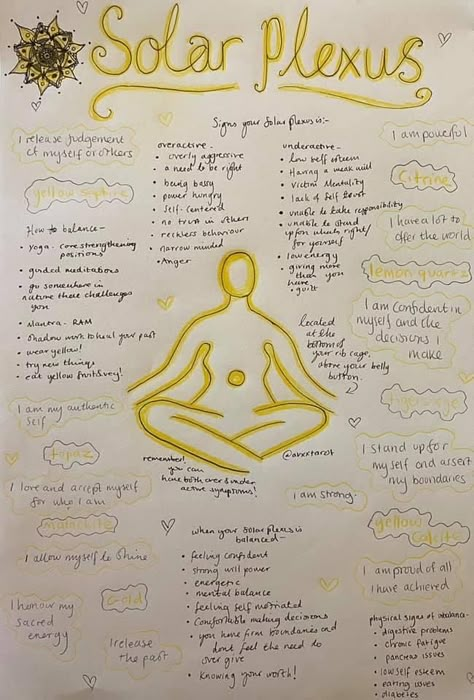 Solar Plexus
Signs your Solar plexus is:-
I release judgement
of myself or others
yellow saphire
How to balance-
• yoga - core strengthening
positions
• guided meditations
• go somewhere in
nature that challenges
you
• Mantra - RAM
• shadow work to heal your past
• wear yellow!
• try new things
• eat yellow fruit & vey!
I am my authentic
self
topaz
I love and accept myself
for who I am
malachite
I allow myself to shine
I honour my
sacred
energy
Gold
I release
the past
overactive -
• overly aggressive
• a need to be right
• being bossy
• power hungry
• Self-centered
• no trust in others
• reckless behaviour
• narrow minded
• Anger
underactive -
• low self esteem
• Having a weak will
• Victim Mentality
• lack of self trust
• unable to take responsibility
• unable to stand
up for whats right/
for yourself
• low energy
• giving more
than you
have
• guilt
located
at the
bottom of
your rib cage,
above your belly
button.
remember!
you can
have both over & under
active symptoms!
@avxxtarot
when your solar plexus is
balanced -
• feeling confident
• strong will power
• energetic
• mental balance
• feeling self motivated
• Comfortable making decisions
• you have firm boundaries and
dont feel the need to
over give
• knowing your worth!
I am powerful
Citrine
I have a lot to
offer the world
lemon quartz
I am confident in
myself and the
decisions I
make
tigerseye
I stand up for
myself and assert
my boundaries
I am strong
yellow
calcite
I am proud of all
I have achieved
physical signs of imbalance-
• digestive problems
• chronic fatigue
• pancreas issues
• low self esteem
• eating issues
• diabetes